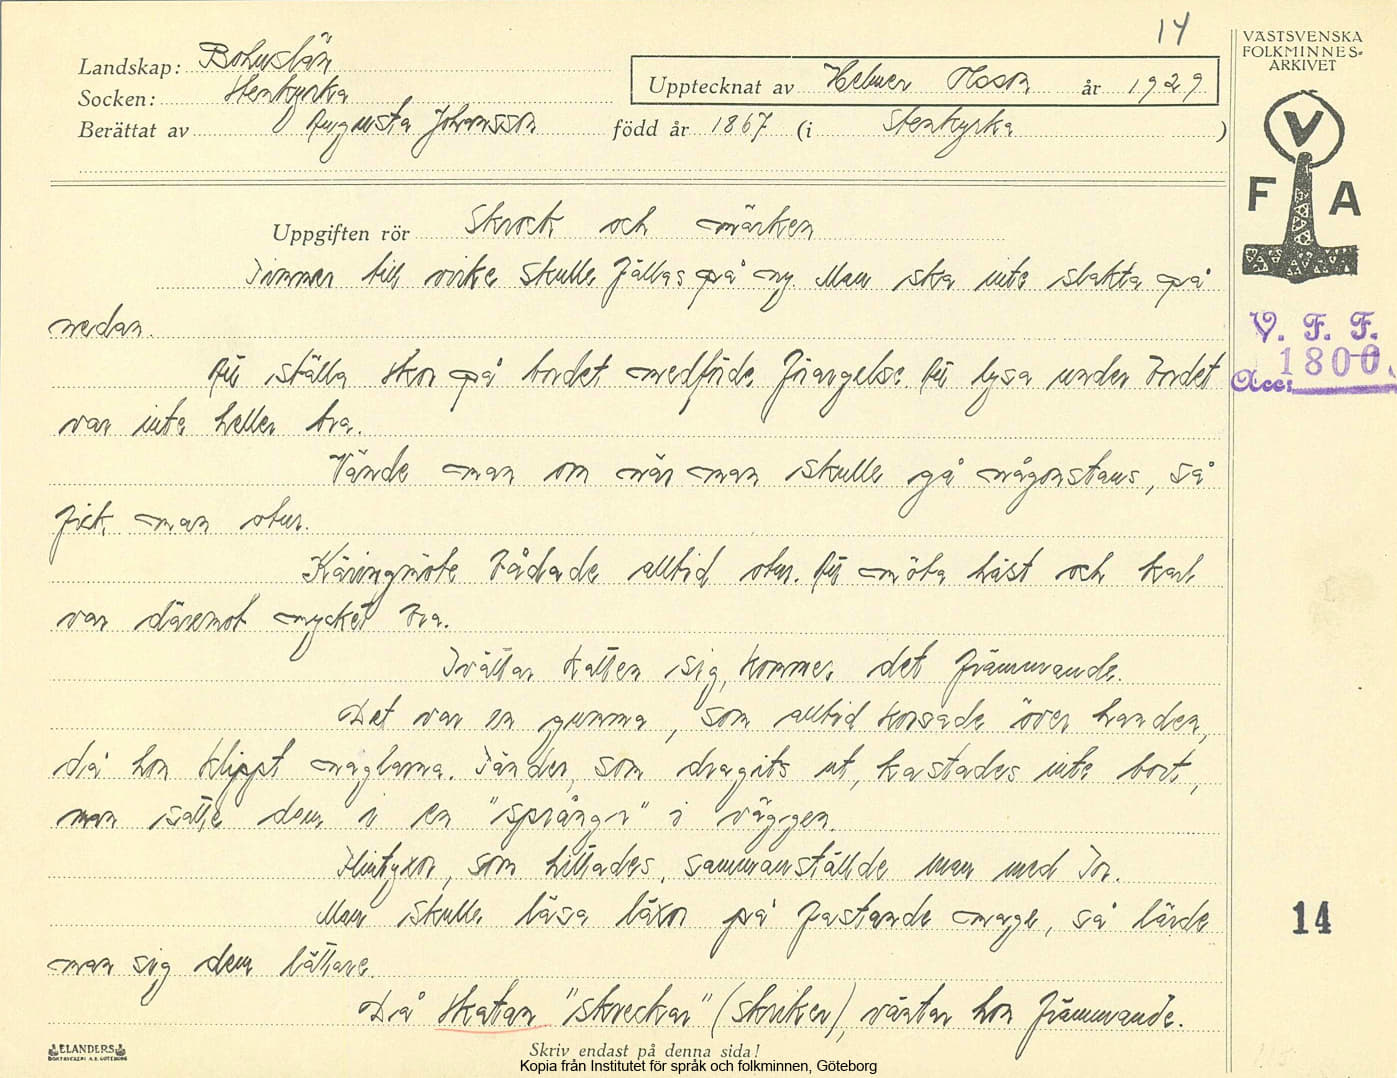 14
VÄSTSVENSKA
FOLKMINNES-
ARKIVET
Landskap: Bohuslän
Socken: Stenkyrka
Upptecknat av Helmer Olsson år 1929
Berättat av Augusta Johansson född år 1867 (i Stenkyrka)
V
F A
Uppgiften rör Skrock och märken
Timmer till virke skulle fällas på ny. Man ska inte slakta på
nedan.
Att ställa skor på bordet medförde förargelse. Att lysa under bordet
var inte heller bra.
Vände man om när man skulle gå någonstans, så
fick man otur.
Käringmöte bådade alltid otur. Att möta häst och karl
var däremot mycket bra.
Tvättar katten sig, kommer det främmande.
Det var en gumma, som alltid korsade över handen,
då hon klippt naglarna. Tänder, som dragits ut, kastades inte bort,
man satte dem i en "språnga" i väggen.
Flintyxor, som hittades, sammanställde man med Tor.
Man skulle läsa läxor på fastande mage, så lärde
man sig dem lättare.
Då skatan "skreckar" (skriker), väntar hon främmande.
V. F. F.
1800.
Acc:
14
ELANDERS
BOKTRYCKERI A.B. GÖTEBORG
Skriv endast på denna sida!
Kopia från Institutet för språk och folkminnen, Göteborg